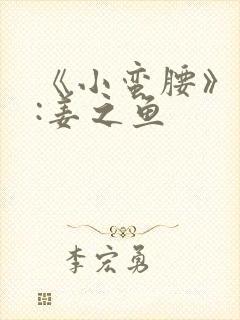 《小蛮腰》
:姜之鱼
李宏勇